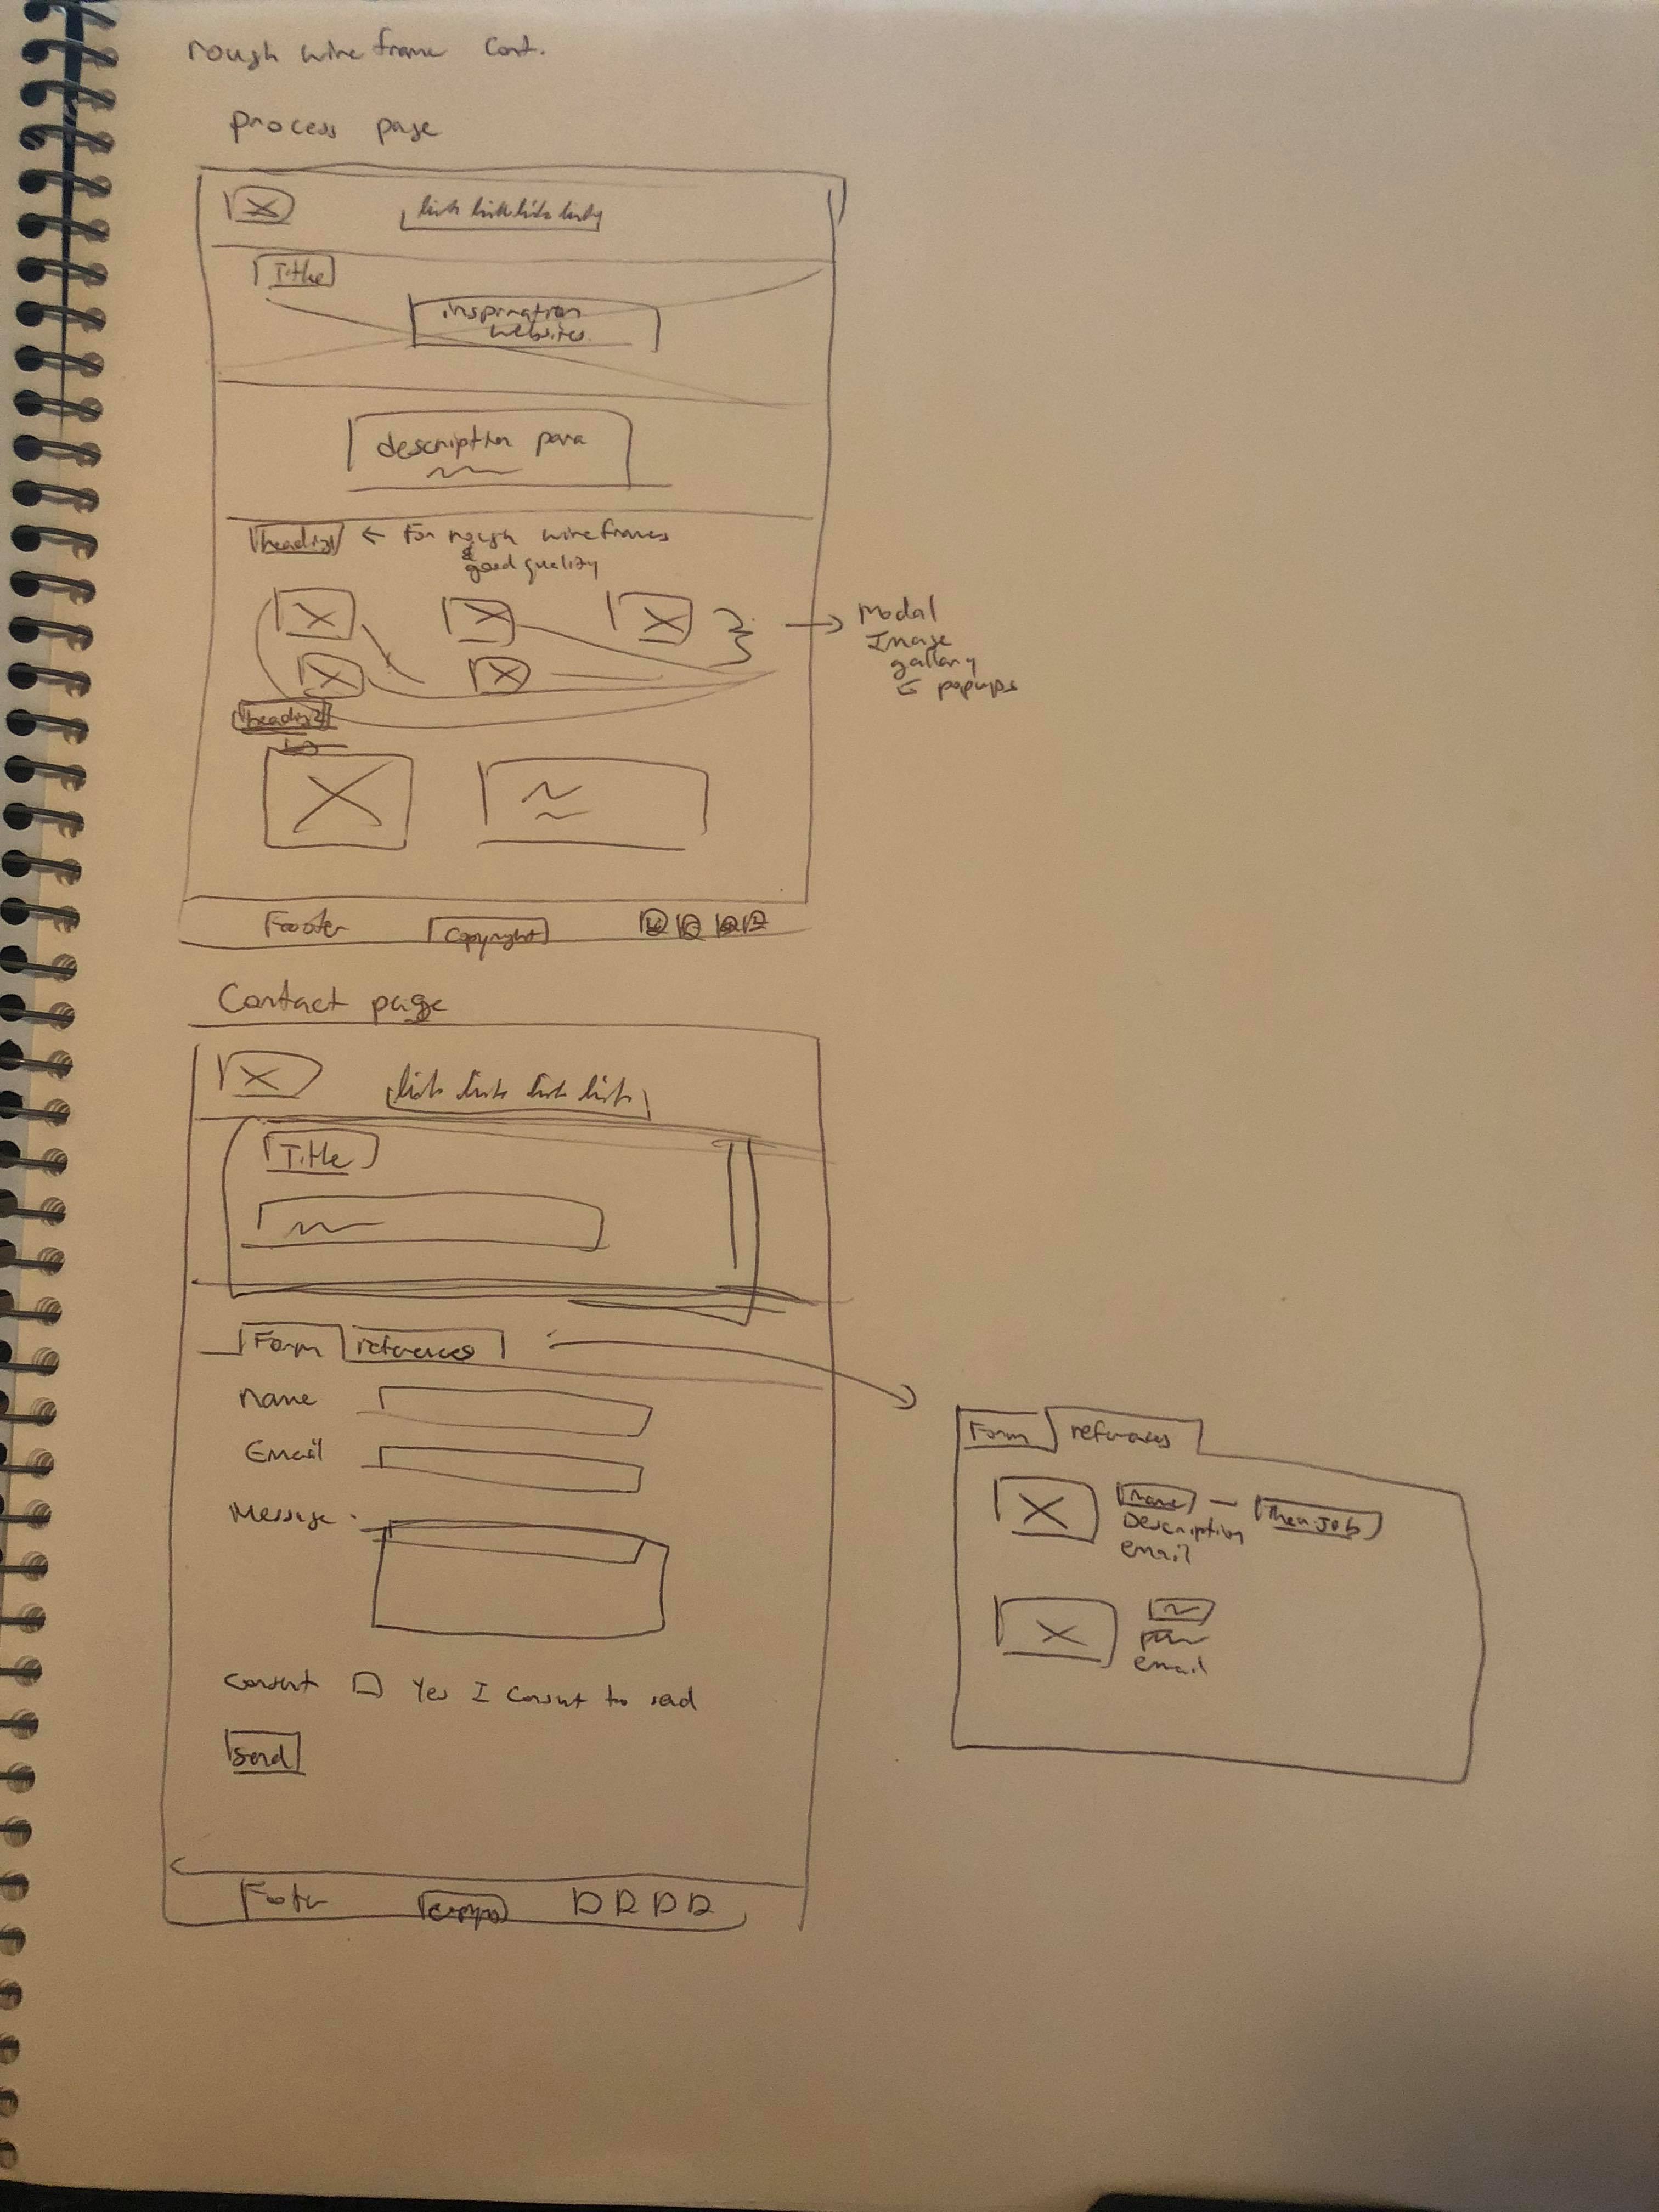 rough wireframe cont.
process page
link link link link
Title
inspiration
websites
description para
heading ← For rough wireframes
&
good quality
→ Modal
Image
gallery
popups
heading 2
Footer copyright
Contact page
link link link link
Title
Form references
name
Email
Message
consent Yes I consent to send
Send
Footer
Form references
name — Their Job
Description
email
email